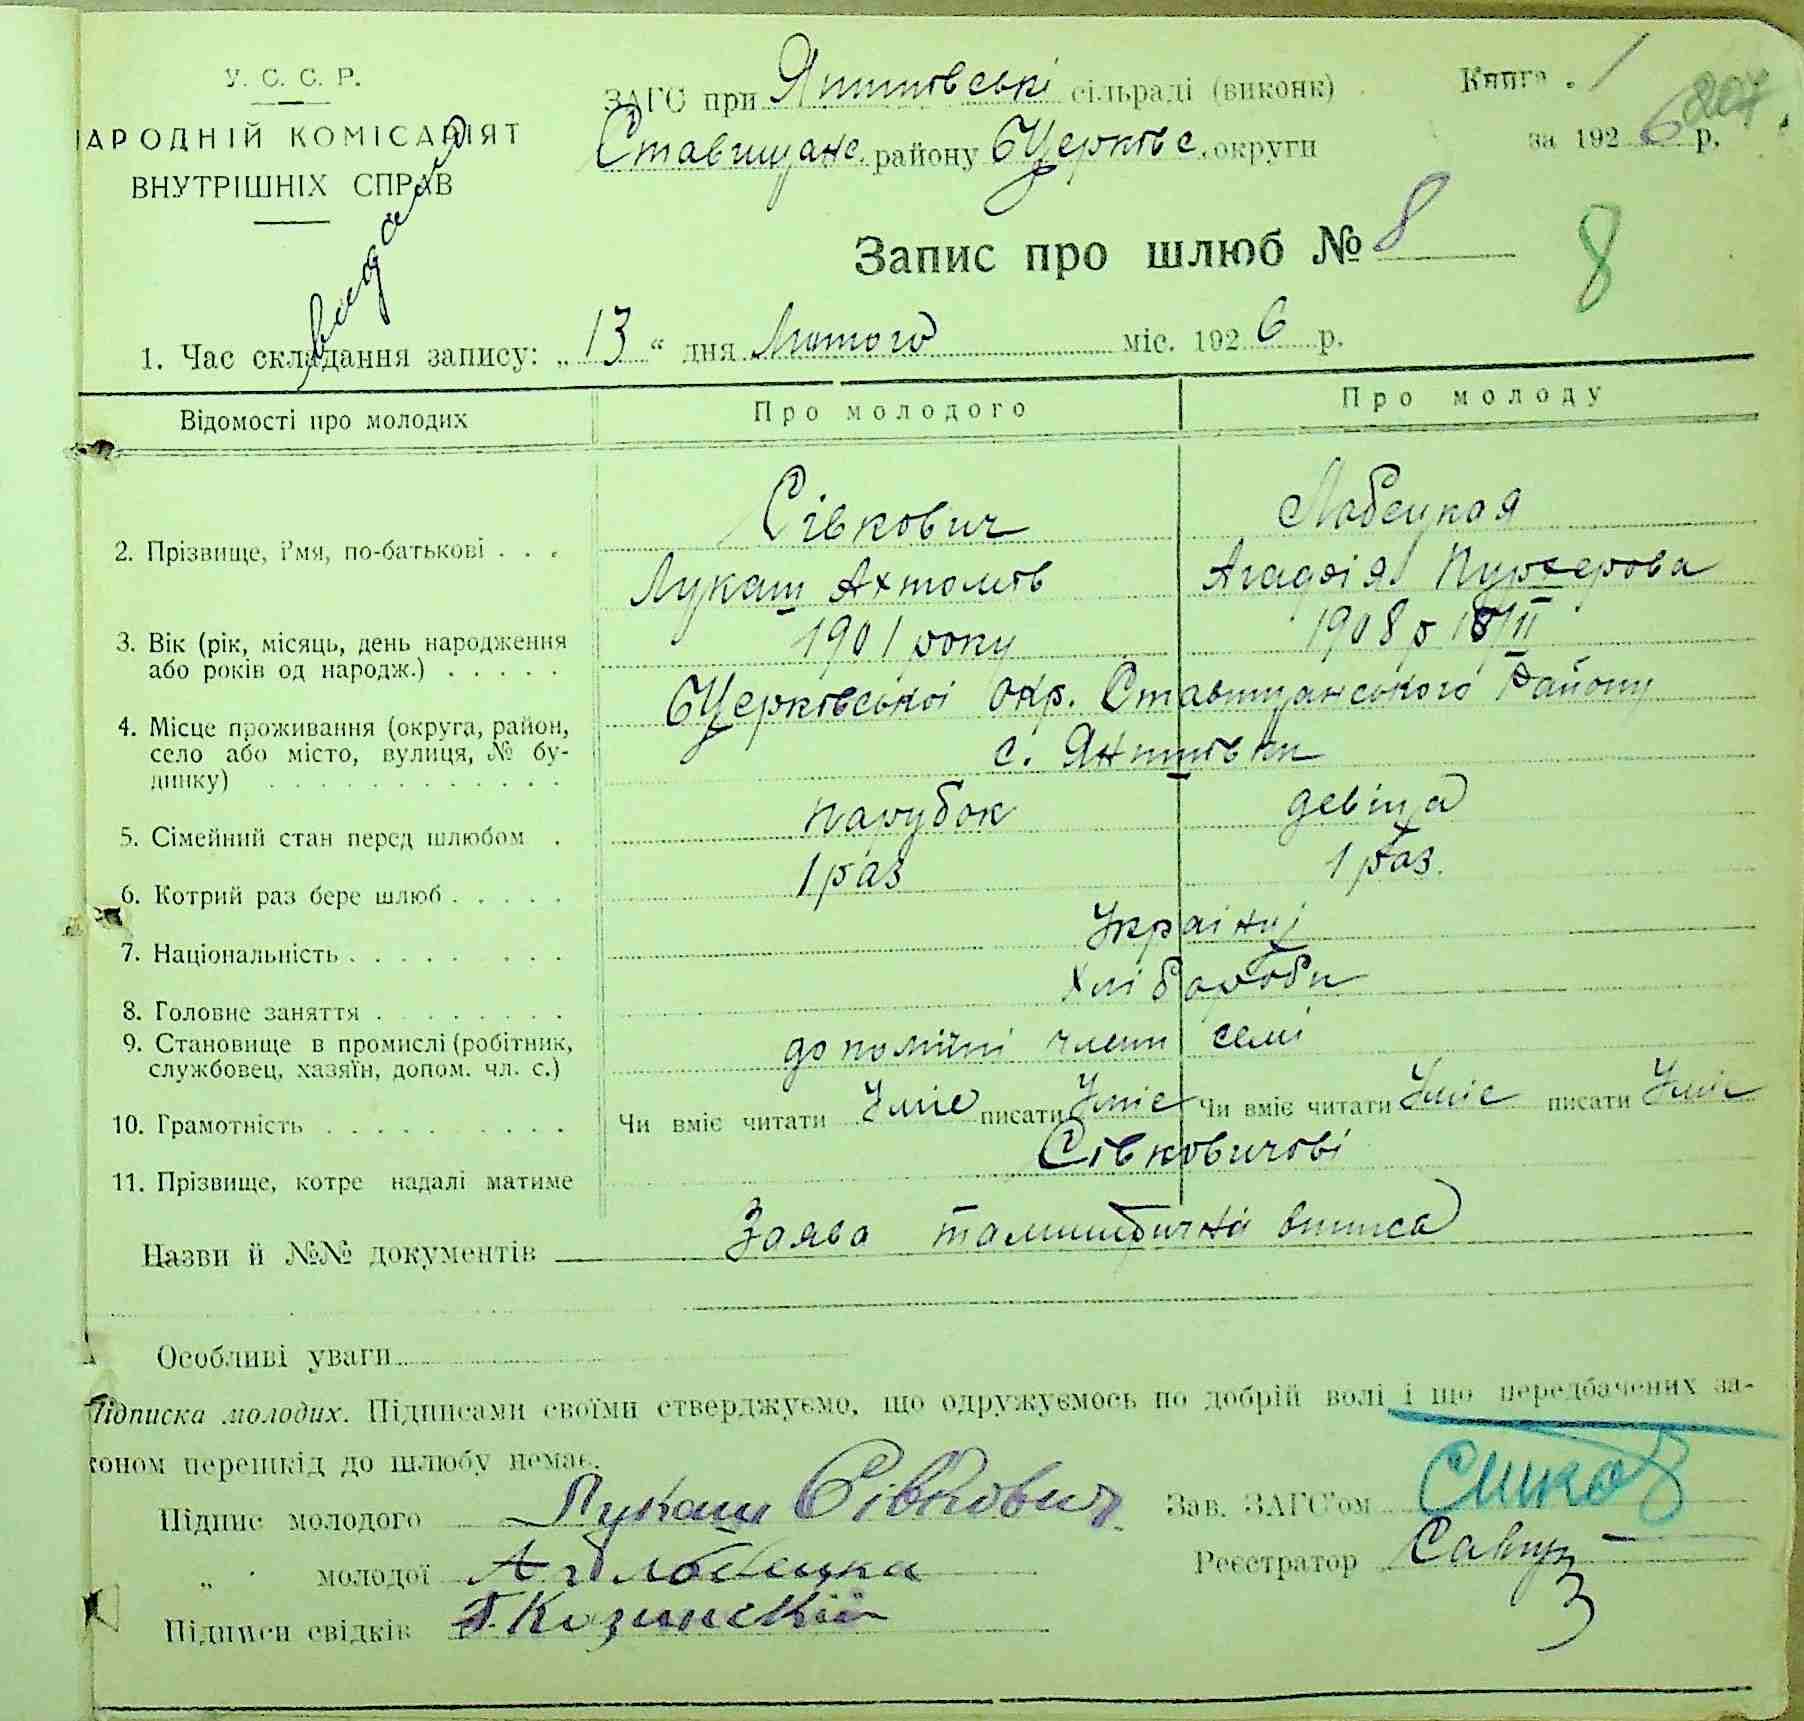 У. С. С. Р.
НАРОДНІЙ КОМІСАРІЯТ
ВНУТРІШНІХ СПРАВ
видана
ЗАГС при сільраді (виконк)
Ставищанс. району БЦерківс. округи
Книга 1
за 1926 р.
207
Запис про шлюб № 8
8
1. Час складання запису: „13“ дня Лютого міс. 1926 р.
Відомості про молодих Про молодого Про молоду
Сівкович Лабецкая
2. Прізвище, і'мя, по-батькові . . .
Лукаш Ахтомів Агафія
3. Вік (рік, місяць, день народження 1901 року 1908 р 18/II
або років од народж.) . . . . .
БЦерківської Окр. Ставищанського Району
4. Місце проживання (округа, район,
село або місто, вулиця, № бу- с. Янишівки
динку) . . . . . . . . . . . .
5. Сімейний стан перед шлюбом . парубок девіца
6. Котрий раз бере шлюб . . . . . 1 раз 1 раз.
7. Національність . . . . . . . . Українці
8. Головне заняття . . . . . . . . Хлібороби
9. Становище в промислі (робітник, допомічні члени семі
службовец, хазяїн, допом. чл. с.)
10. Грамотність . . . . . . . . . . Чи вміє читати Уміє писати Уміє Чи вміє читати Уміє писати Уміє
11. Прізвище, котре надалі матиме Сівковичові
Назви й №№ документів Заява виписа
Особливі уваги
Підписка молодих. Підписами своїми стверджуємо, що одружуємось по добрій волі і що передбачених за-
коном перешкід до шлюбу немає.
Підпис молодого Лукаш Сівкович Зав. ЗАГС'ом
„ молодої Лобецка Реєстратор
Підписи свідків Козинскій